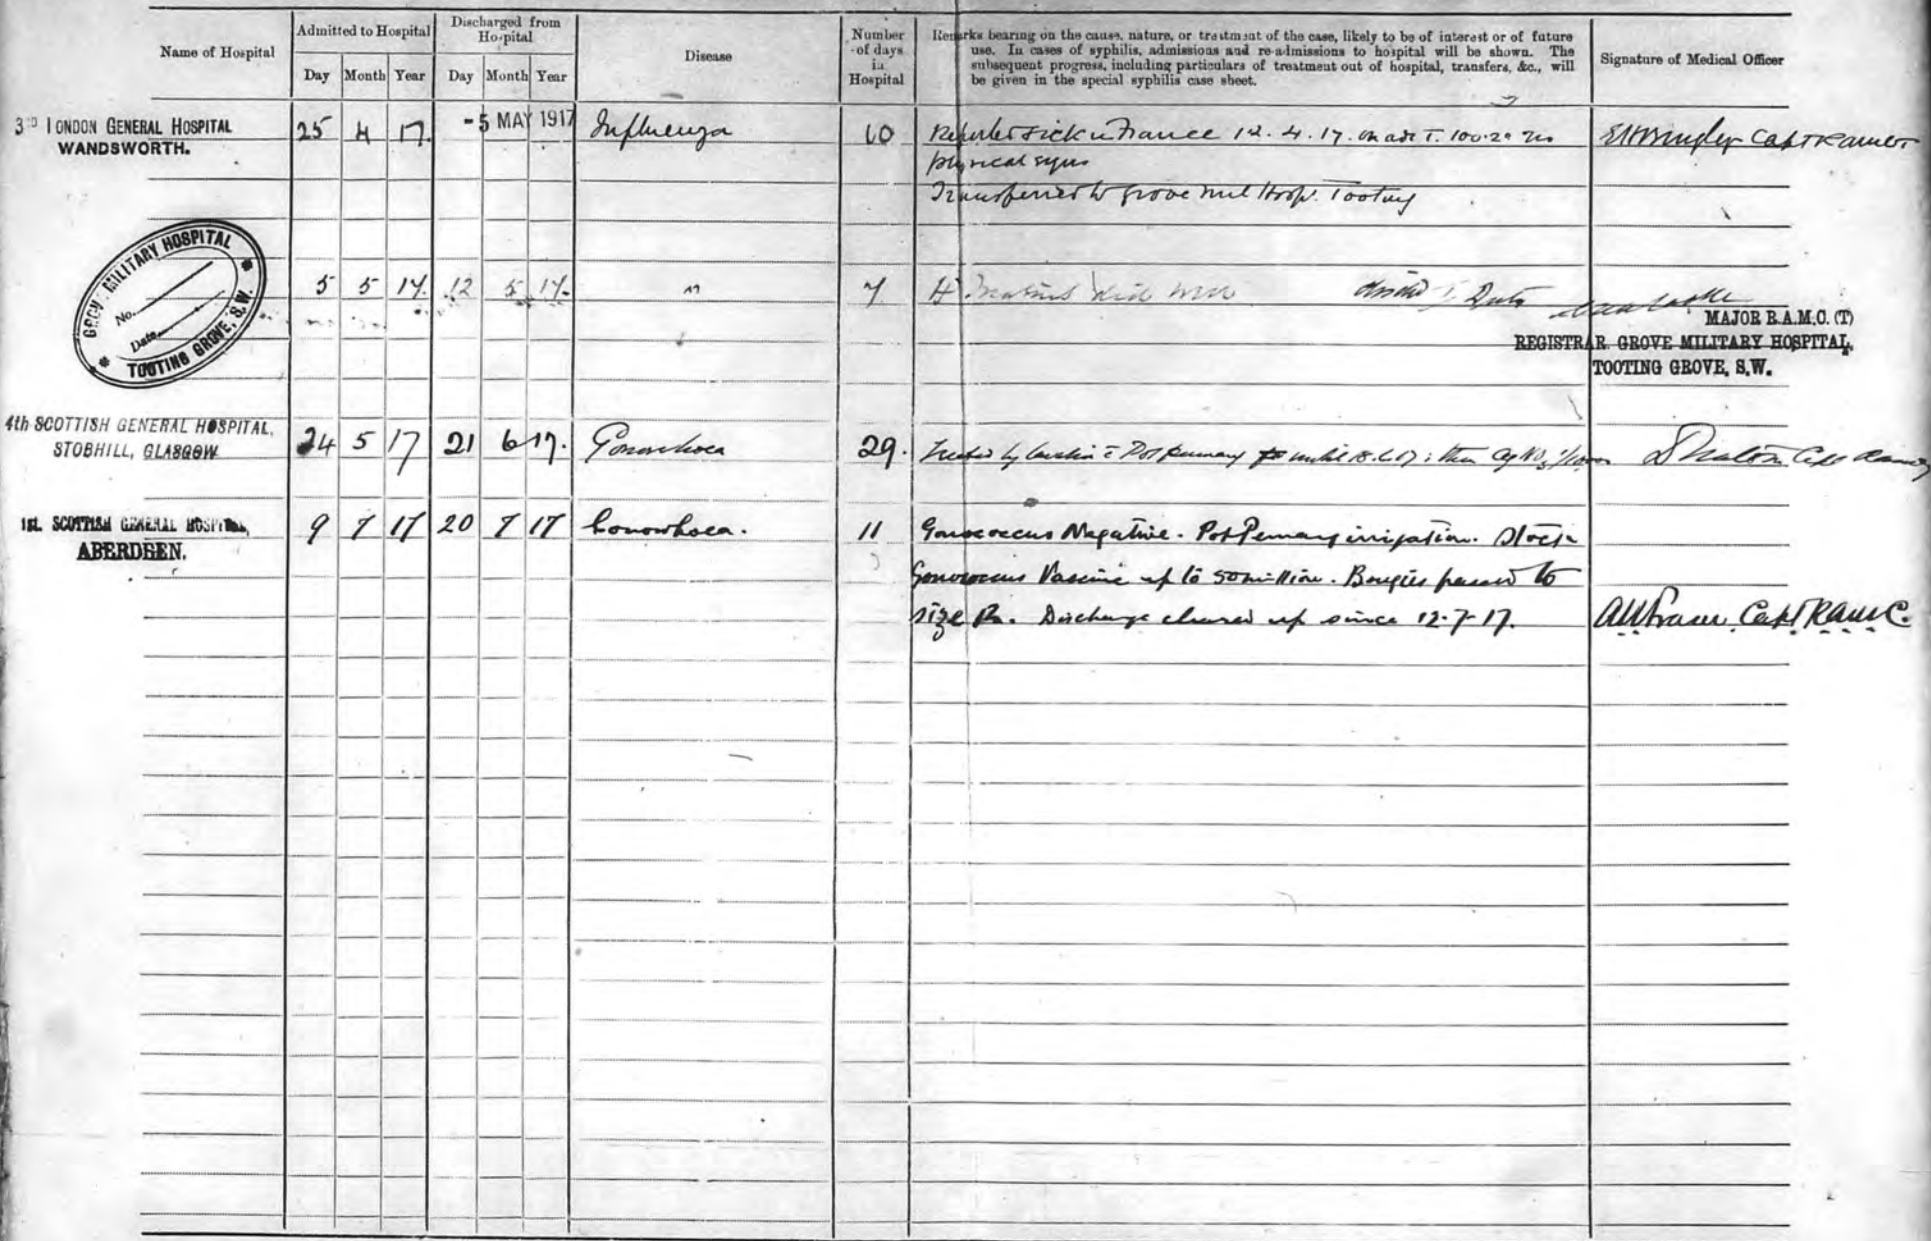 Name of Hospital
Admitted to Hospital
Day Month Year
Discharged from
Hospital
Day Month Year
Disease
Number
of days
in
Hospital
Remarks bearing on the cause, nature, or treatment of the case, likely to be of interest or of future
use. In cases of syphilis, admissions and re-admissions to hospital will be shown. The
subsequent progress, including particulars of treatment out of hospital, transfers, &c., will
be given in the special syphilis case sheet.
Signature of Medical Officer
3RD LONDON GENERAL HOSPITAL
WANDSWORTH.
25 4 17. -5 MAY 1917 Influenza 10 Reported sick in France 12.4.17. T. 100.2 no
physical signs
Transferred to Grove Mil Hosp. Tooting
Capt RAMC
GROVE MILITARY HOSPITAL
No.
Date
TOOTING GROVE, S.W.
5 5 17. 12 5 17. " 7
Duty
MAJOR R.A.M.C. (T)
REGISTRAR. GROVE MILITARY HOSPITAL,
TOOTING GROVE, S.W.
4th SCOTTISH GENERAL HOSPITAL,
STOBHILL, GLASGOW
24 5 17 21 6 17. Gonorrhoea 29. Treated by c̄ Pot Permang until 18.6.17: then AgNO3
Capt RAMC
1st. SCOTTISH GENERAL HOSPITAL,
ABERDEEN.
9 7 17 20 7 17 Gonorrhoea. 11 Gonococcus Negative. Pot Permang irrigation. Stock
Gonococcus Vaccine up to 50 million. Bougies passed to
size. Discharge cleared up since 12.7.17.
AW Fraser Capt RAMC.